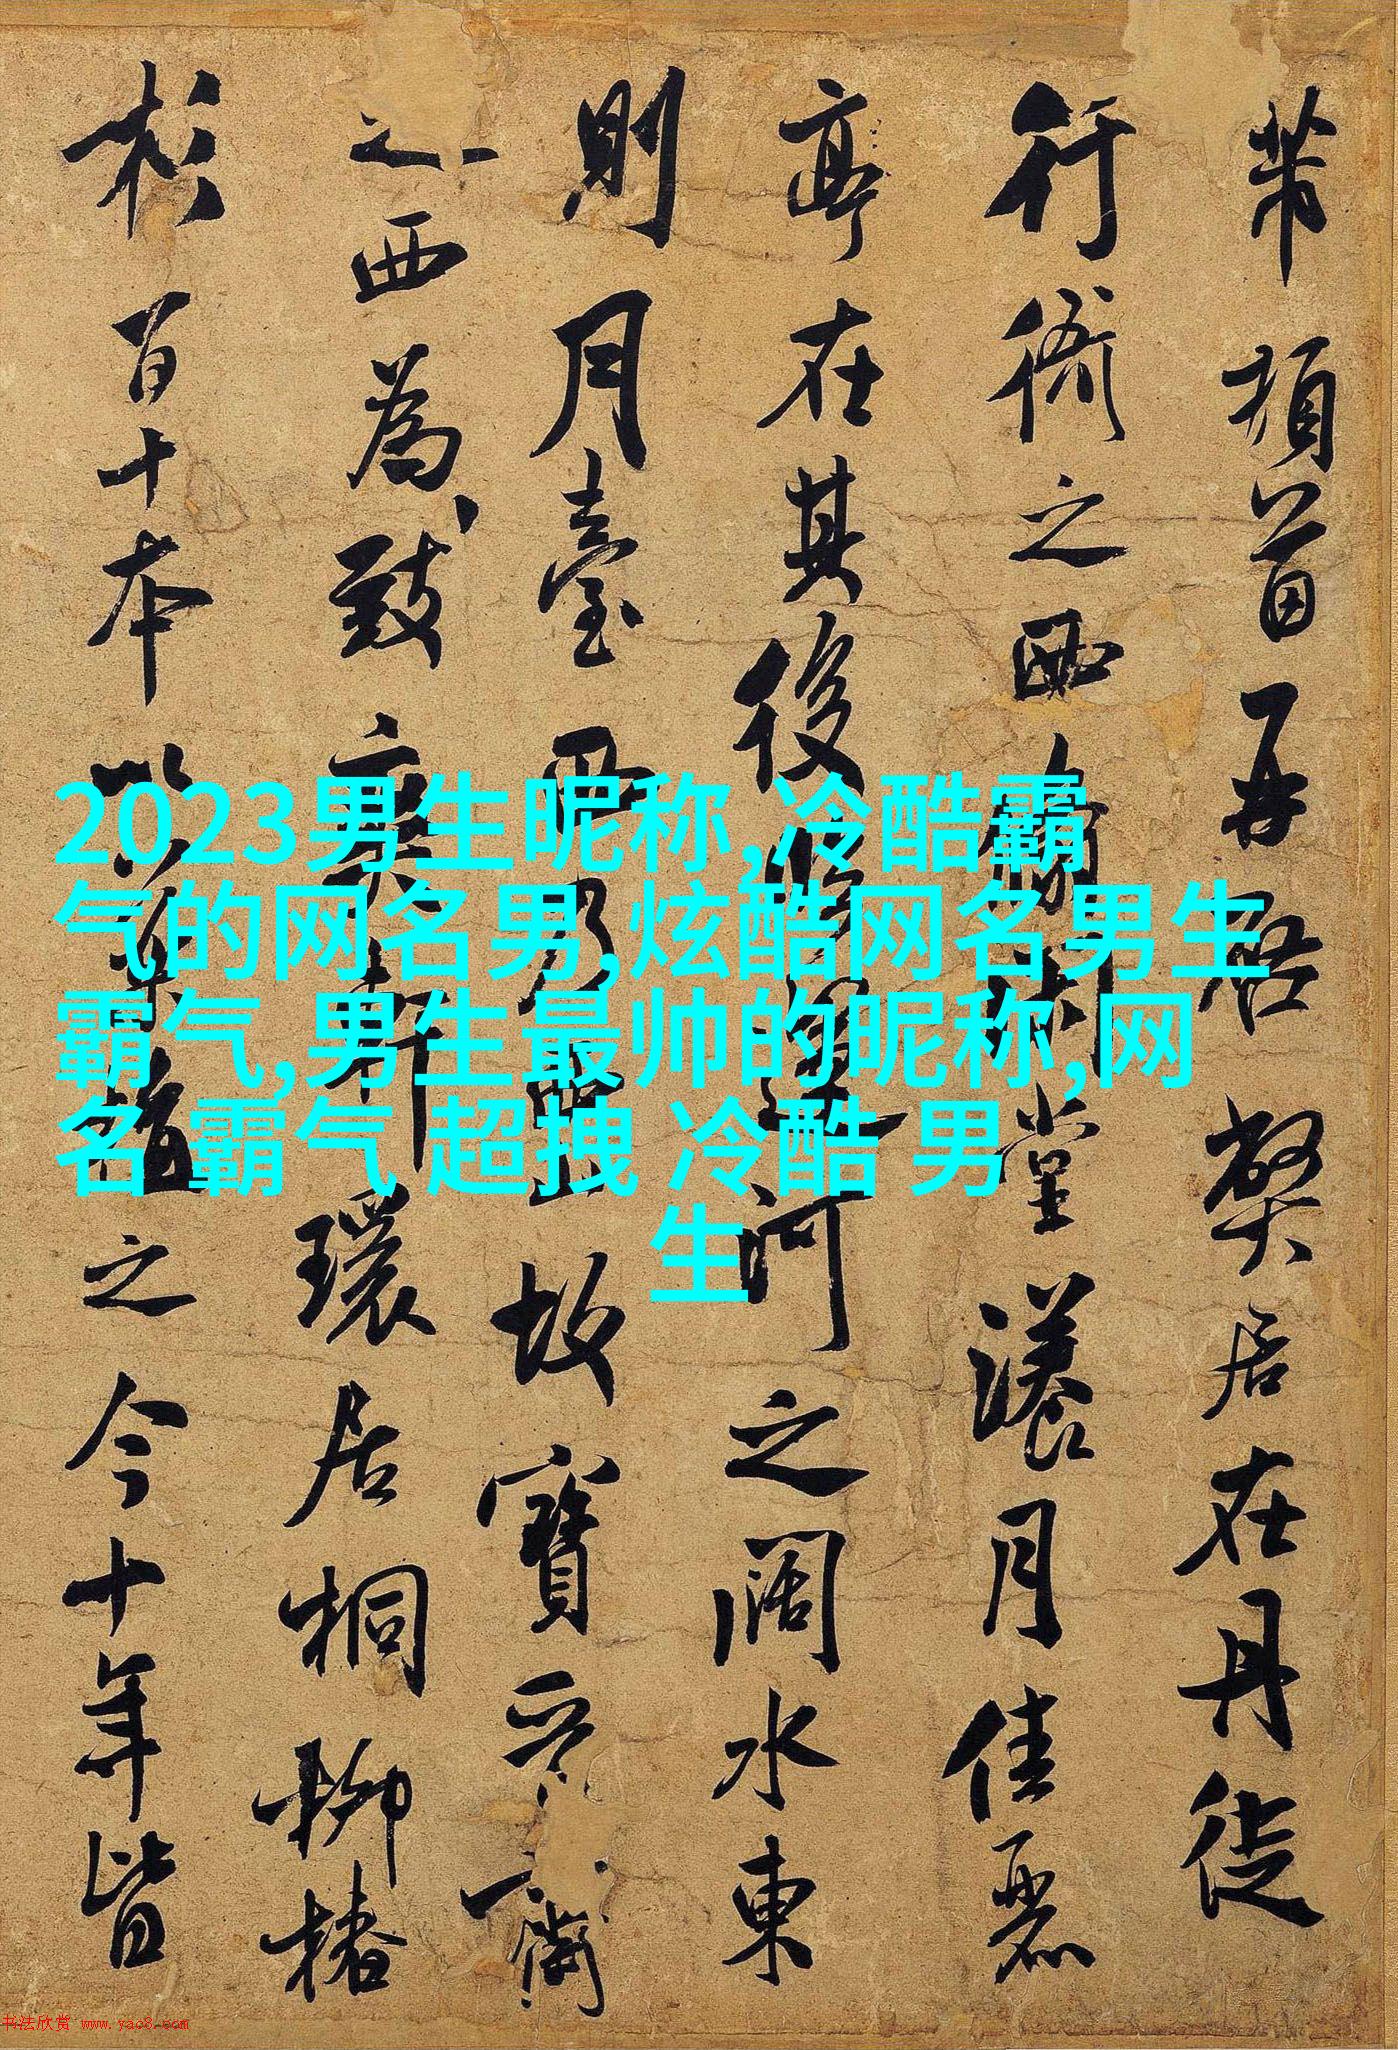 芾頓首再啓弊居在丹徒
行衙之西翛閑堂漾月佳麗
亭在其後臨運河之闊水東
則月臺西乃西山故寶晉齋
之西為致爽軒環居桐柳椿
杉百十本以植之今十年皆
2023男生昵称,冷酷霸
气的网名男,炫酷网名男生
霸气,男生最帅的昵称,网
名 霸气 超拽 冷酷 男
生
书法欣赏 www.yac8.com